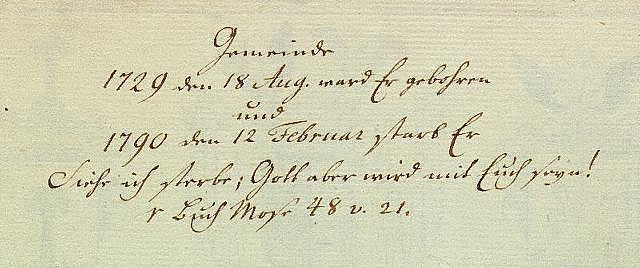 Gemeinde
1729 den 18 Aug. ward Er gebohren
und
1790 den 12 Februar starb Er
Siehe ich sterbe; Gott aber wird mit Euch seyn!
1 Buch Mose 48 v. 21.